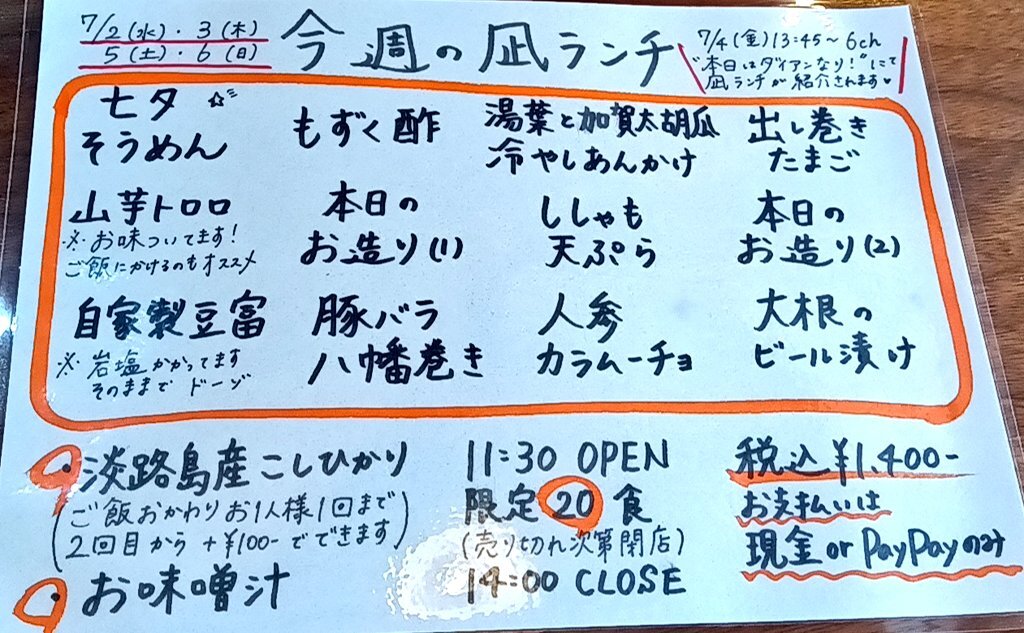 7/2(水)・3(木)
5(土)・6(日)
今週の凪ランチ
7/4(金)13:45〜6ch
"本日はダイアンなり!"にて
凪ランチが紹介されます♥
七夕☆
そうめん
もずく酢
湯葉と加賀太胡瓜
冷やしあんかけ
出し巻き
たまご
山芋トロロ
※お味ついてます!
ご飯にかけるのもオススメ
本日の
お造り(1)
ししゃも
天ぷら
本日の
お造り(2)
自家製豆富
※岩塩かかってます
そのままでドーゾ
豚バラ
八幡巻き
人参
カラムーチョ
大根の
ビール漬け
淡路島産こしひかり
(ご飯おかわりお1人様1回まで
2回目から+¥100-でできます)
お味噌汁
11:30 OPEN
限定20食
(売り切れ次第閉店)
14:00 CLOSE
税込¥1,400-
お支払いは
現金or PayPayのみ